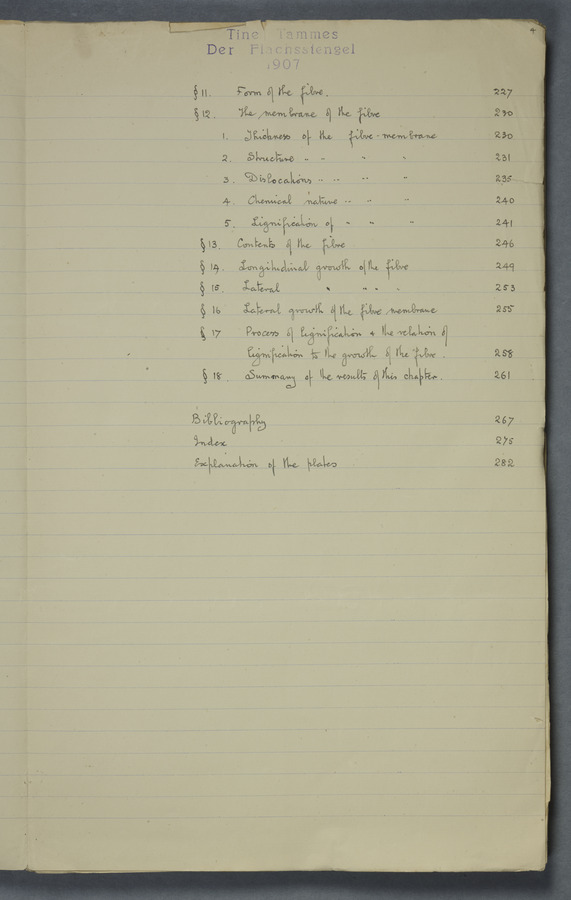 4
Tine Tammes
Der Flachsstengel
1907
§ 11. Form of the fibre. 227
§ 12. The membrane of the fibre 230
1. Thickness of the fibre-membrane 230
2. Structure " " " " 231
3. Dislocations " " " " 235
4. Chemical nature " " " 240
5. Lignification of " " " 241
§ 13. Contents of the fibre 246
§ 14. Longitudinal growth of the fibre 249
§ 15. Lateral " " " " 253
§ 16 Lateral growth of the fibre membrane 255
§ 17 Process of lignification & the relation of
lignification to the growth of the fibre. 258
§ 18. Summary of the results of this chapter. 261
Bibliography 267
Index 275
Explanation of the plates 282